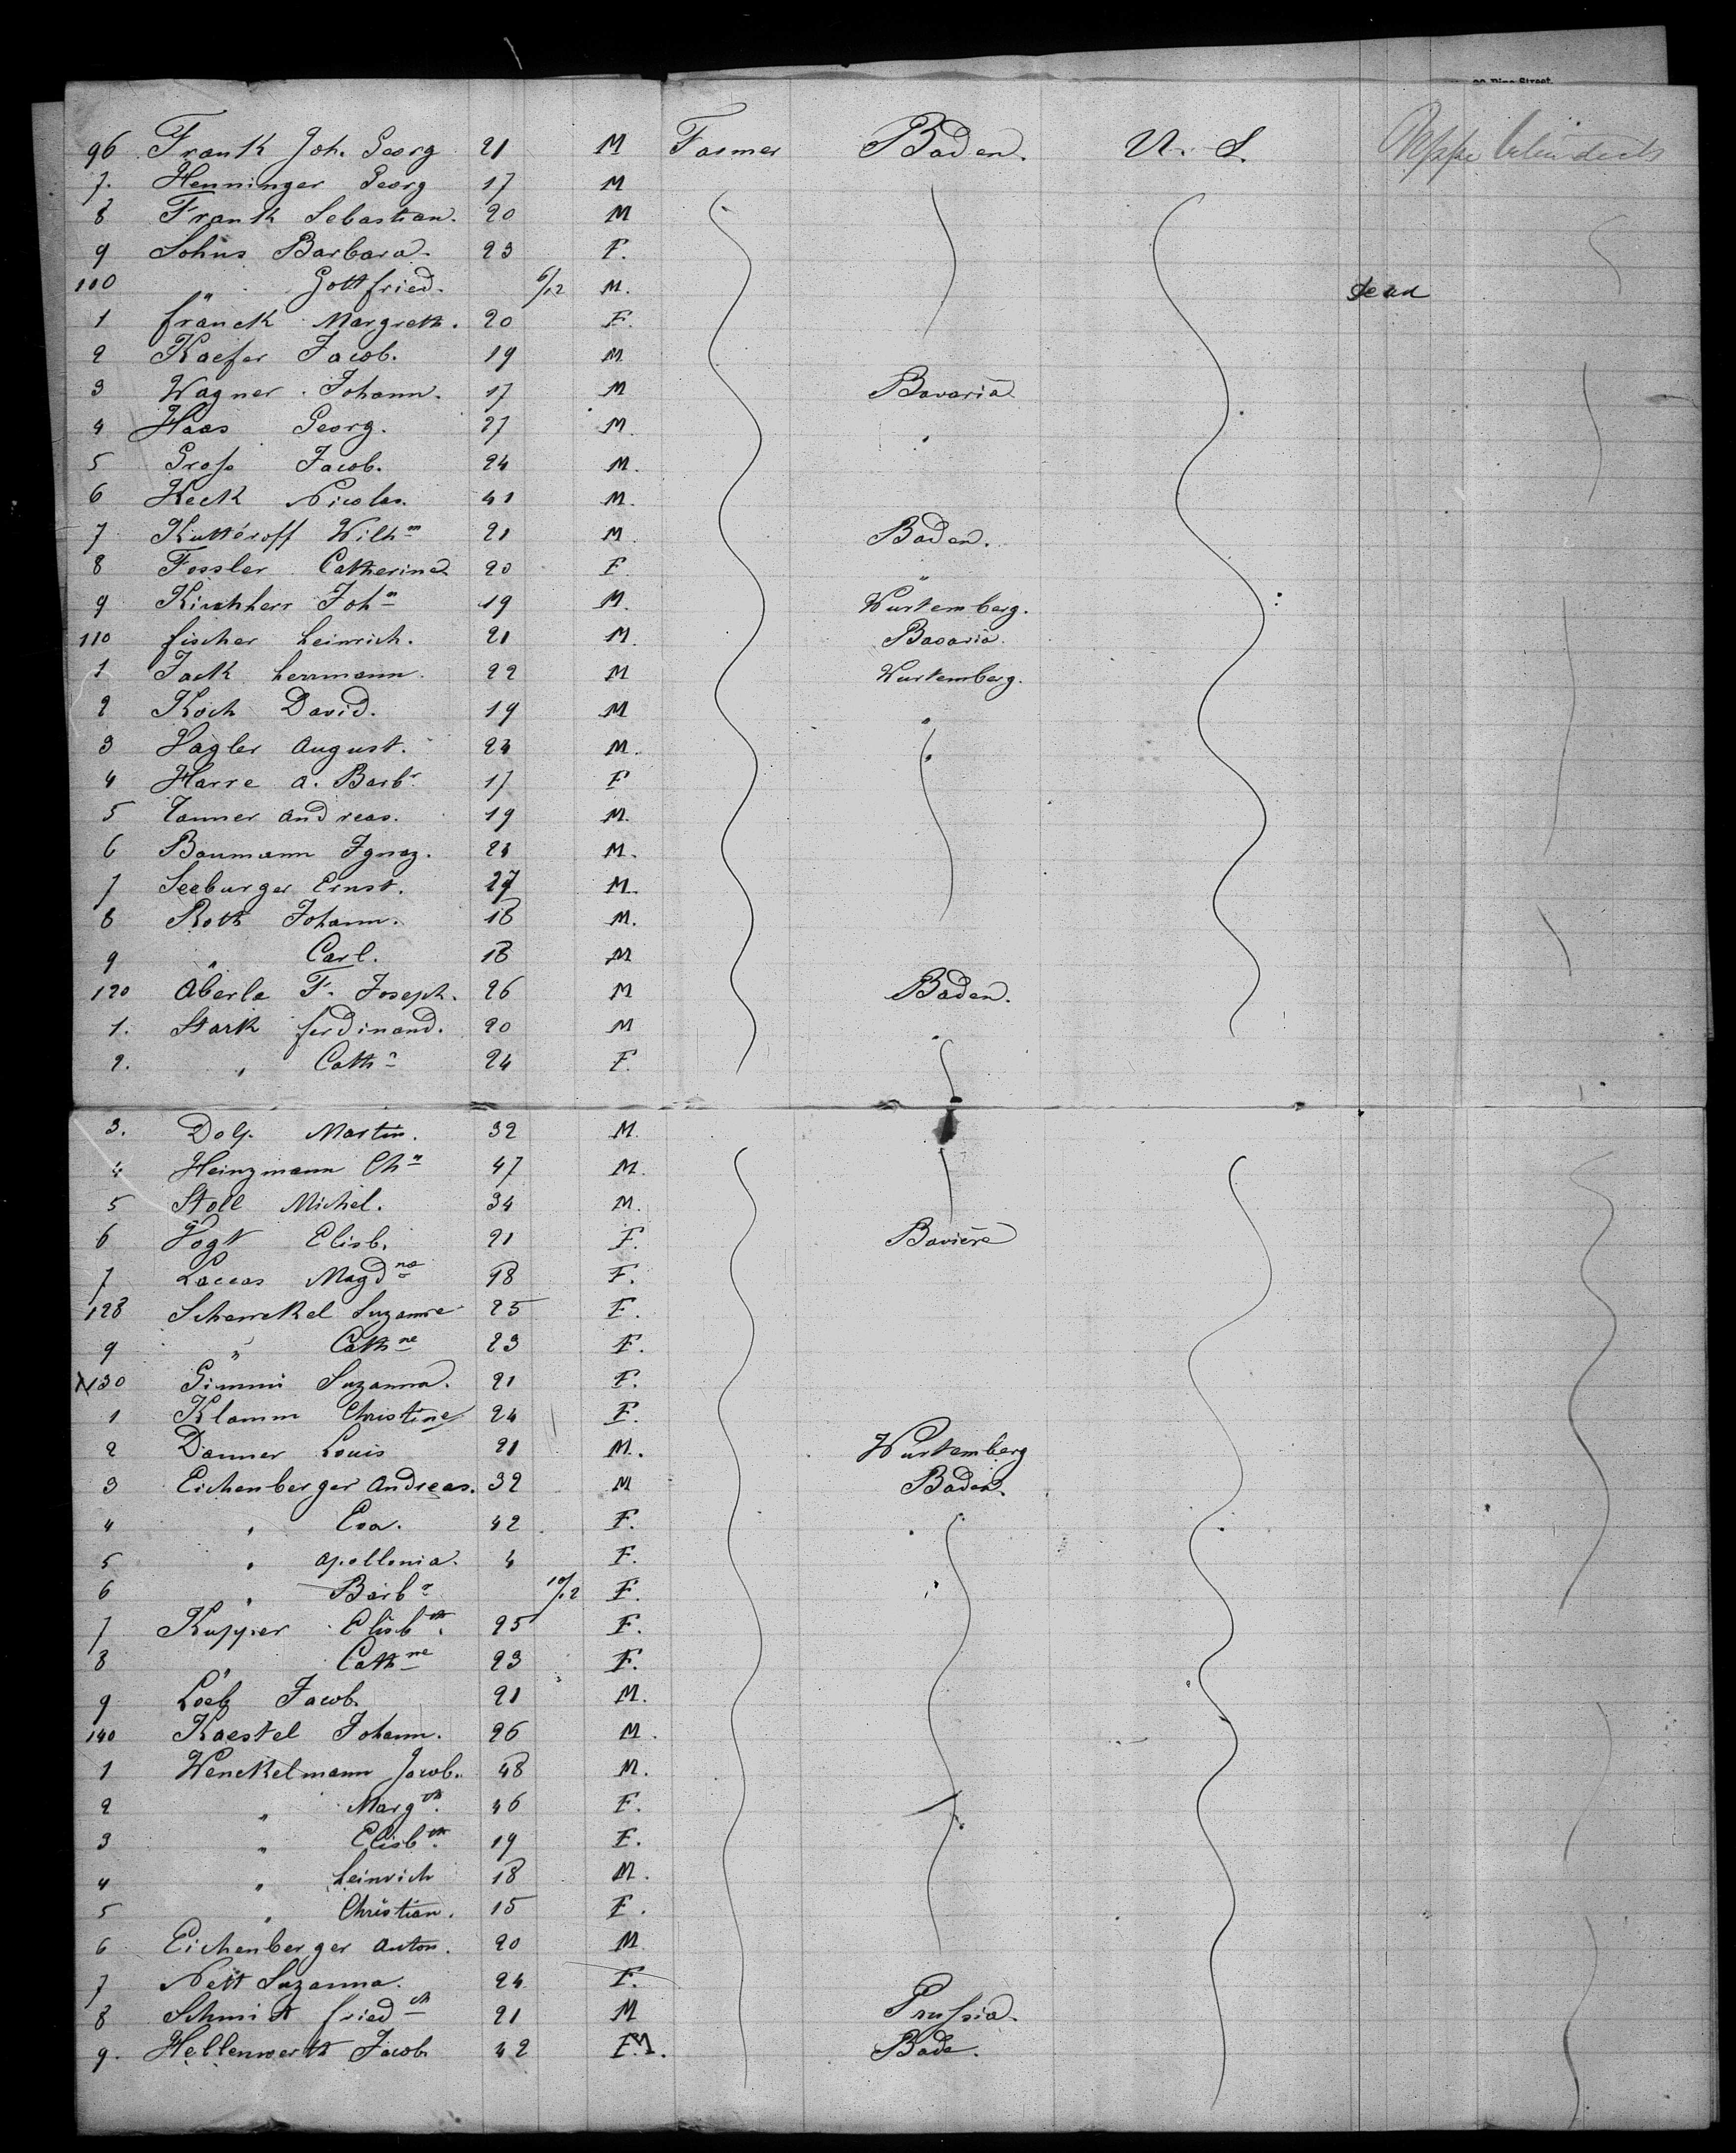 96 Frank Joh. Georg 21 M Farmer Baden. U. S.
7. Henninger Georg 17 M
8 Frank Sebastian. 20 M
9 Sohns Barbara. 23 F.
100 " Gottfried. 6/12 M. dead
1 franck Margreth. 20 F.
2 Kaefer Jacob. 19 M
3 Wagner Johann. 17 M Bavaria
4 Haas Georg. 27 M.
5 Groß Jacob. 24 M.
6 Keck Nicolas. 41 M.
7 Kutteroff Wilhm 21 M. Baden.
8 Fossler Catherine. 20 F. "
9 Kirchherr John 19 M. Wurtemberg.
110 fischer heinrich. 21 M. Bavaria.
1 Jack herrmann. 22 M Wurtemberg.
2 Koch David. 19 M
3 Vagler August. 24 M.
4 Harre A. Barbr 17 F
5 Tanner Andreas. 19 M.
6 Baumann Ignaz. 21 M.
7 Seeburger Ernst. 27 M.
8 Roth Johann. 18 M.
9 " Carl. 18 M
120 Aberle F. Joseph. 26 M Baden.
1. Stark ferdinand. 20 M
2. " Cath 24 F.
3. Martin. 32 M.
4 Heinzmann Chn 47 M.
5 Stoll Michel. 34 M.
6 Vogt Elisb. 21 F. Baviere
7 Magdna 18 F.
128 Schenckel Suzanne 25 F.
9 " Cathne 23 F.
130 Gimmi Suzanna. 21 F.
1 Klamm Christine 24 F.
2 Danner Louis 21 M. Wurtemberg
3 Eichenberger Andreas. 32 M Baden.
4 " Eva. 42 F.
5 " Apollonia. 4 F.
6 " Barba 10/12 F.
7 Kupper Elisbth. 25 F.
8 " Cathne 23 F.
9 Loeb Jacob. 21 M.
140 Kaestel Johann. 26 M.
1 Wenckelmann Jacob. 48 M.
2 " Margth. 46 F.
3 " Elisbth. 19 F.
4 " heinrich 18 M.
5 " Christian. 15 F.
6 Eichenberger Anton. 20 M.
7 Nett Suzanna. 24 F.
8 Schmidt friedch 21 M Prußia.
9. Hellenwerth Jacob 42 M. Bade.